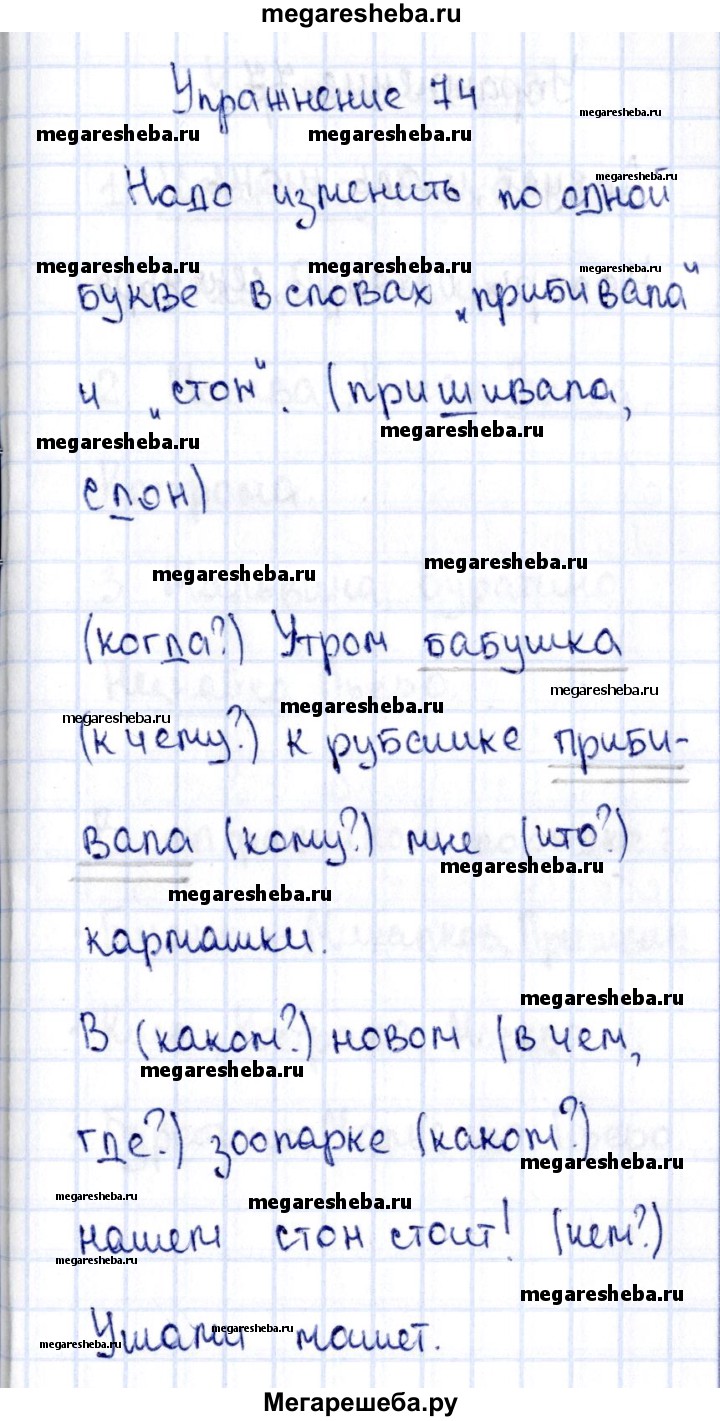 megaresheba.ru
Упражнение 74
megaresheba.ru megaresheba.ru megaresheba.ru
megaresheba.ru
Надо изменить по одной
megaresheba.ru megaresheba.ru megaresheba.ru
букве в словах „прибивала“
и „стон“. (пришивала,
megaresheba.ru megaresheba.ru
слон)
megaresheba.ru megaresheba.ru
(когда?) Утром бабушка
megaresheba.ru megaresheba.ru megaresheba.ru
(к чему?) к рубашке приби-
вала (кому?) мне (что?)
megaresheba.ru megaresheba.ru
кармашки.
megaresheba.ru
В (каком?) новом (в чем,
megaresheba.ru
где?) зоопарке (каком?)
megaresheba.ru
megaresheba.ru megaresheba.ru
нашем стон стоит! (чем?)
megaresheba.ru
megaresheba.ru
Ушами машет.
megaresheba.ru megaresheba.ru
Мегарешеба.ру